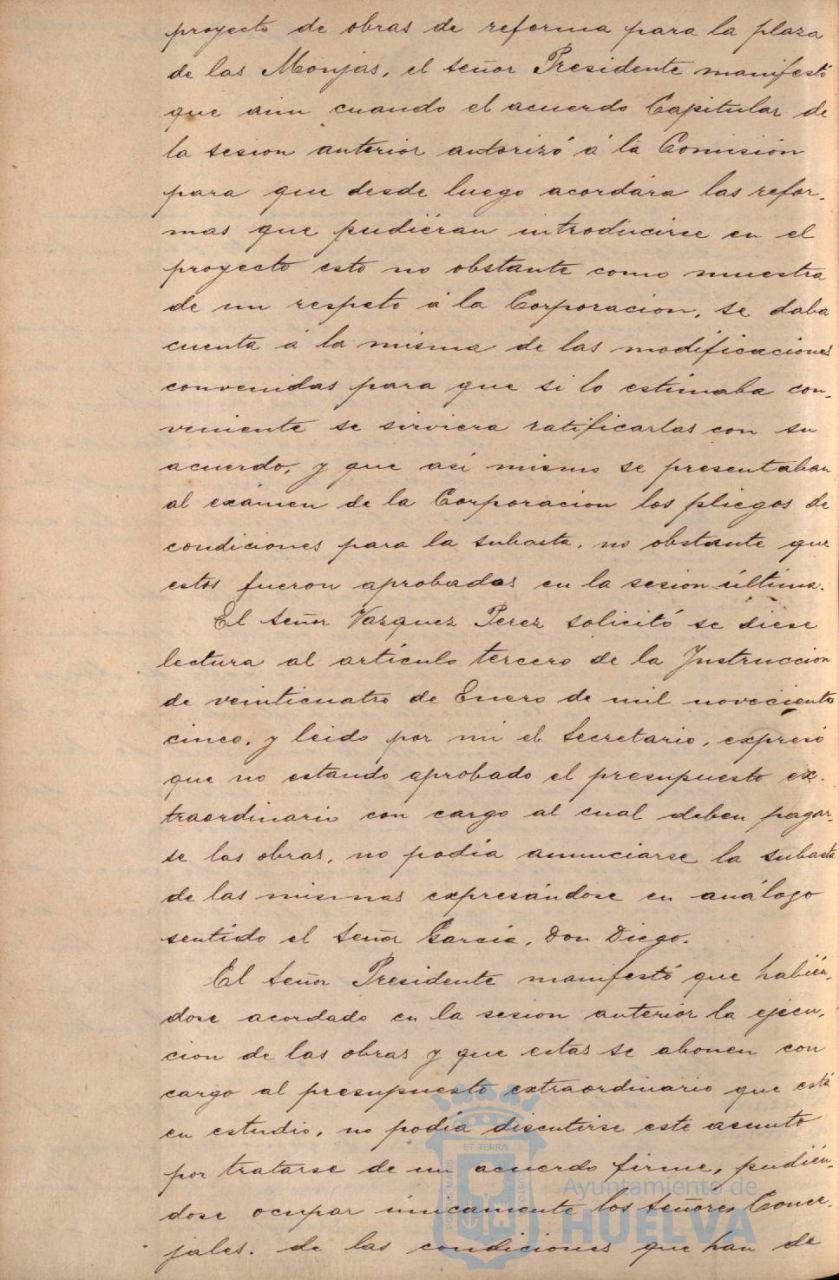 proyecto de obras de reforma para la plaza
de las Monjas, el señor Presidente manifestó
que aun cuando el acuerdo Capitular de
la sesion anterior autorizó á la Comisión
para que desde luego acordára las refor-
mas que pudiéran introducirse en el
proyecto esto no obstante como muestra
de un respeto á la Corporacion, se daba
cuenta á la misma de las modificaciones
convenidas para que si lo estimaba con-
veniente se sirviera ratificarlas con su
acuerdo, y que asi mismo se presentaban
al exámen de la Corporacion los pliegos de
condiciones para la subasta, no obstante que
estos fueron aprobados en la sesion última.
El señor Vazquez Perez solicitó se diese
lectura al artículo tercero de la Instruccion
de veinticuatro de Enero de mil novecientos
cinco, y leido por mi el Secretario, expresó
que no estando aprobado el presupuesto ex-
traordinario con cargo al cual deben pagar-
se las obras, no podia anunciarse la subasta
de las mismas expresándose en análogo
sentido el señor García, Don Diego.
El señor Presidente manifestó que habién-
dose acordado en la sesion anterior la ejecu-
cion de las obras y que estas se abonen con
cargo al presupuesto extraordinario que está
en estudio, no podía discutirse este asunto
por tratarse de un acuerdo firme, pudién-
dose ocupar únicamente los señores Conce-
jales, de las condiciones que han de
Ayuntamiento de
HUELVA